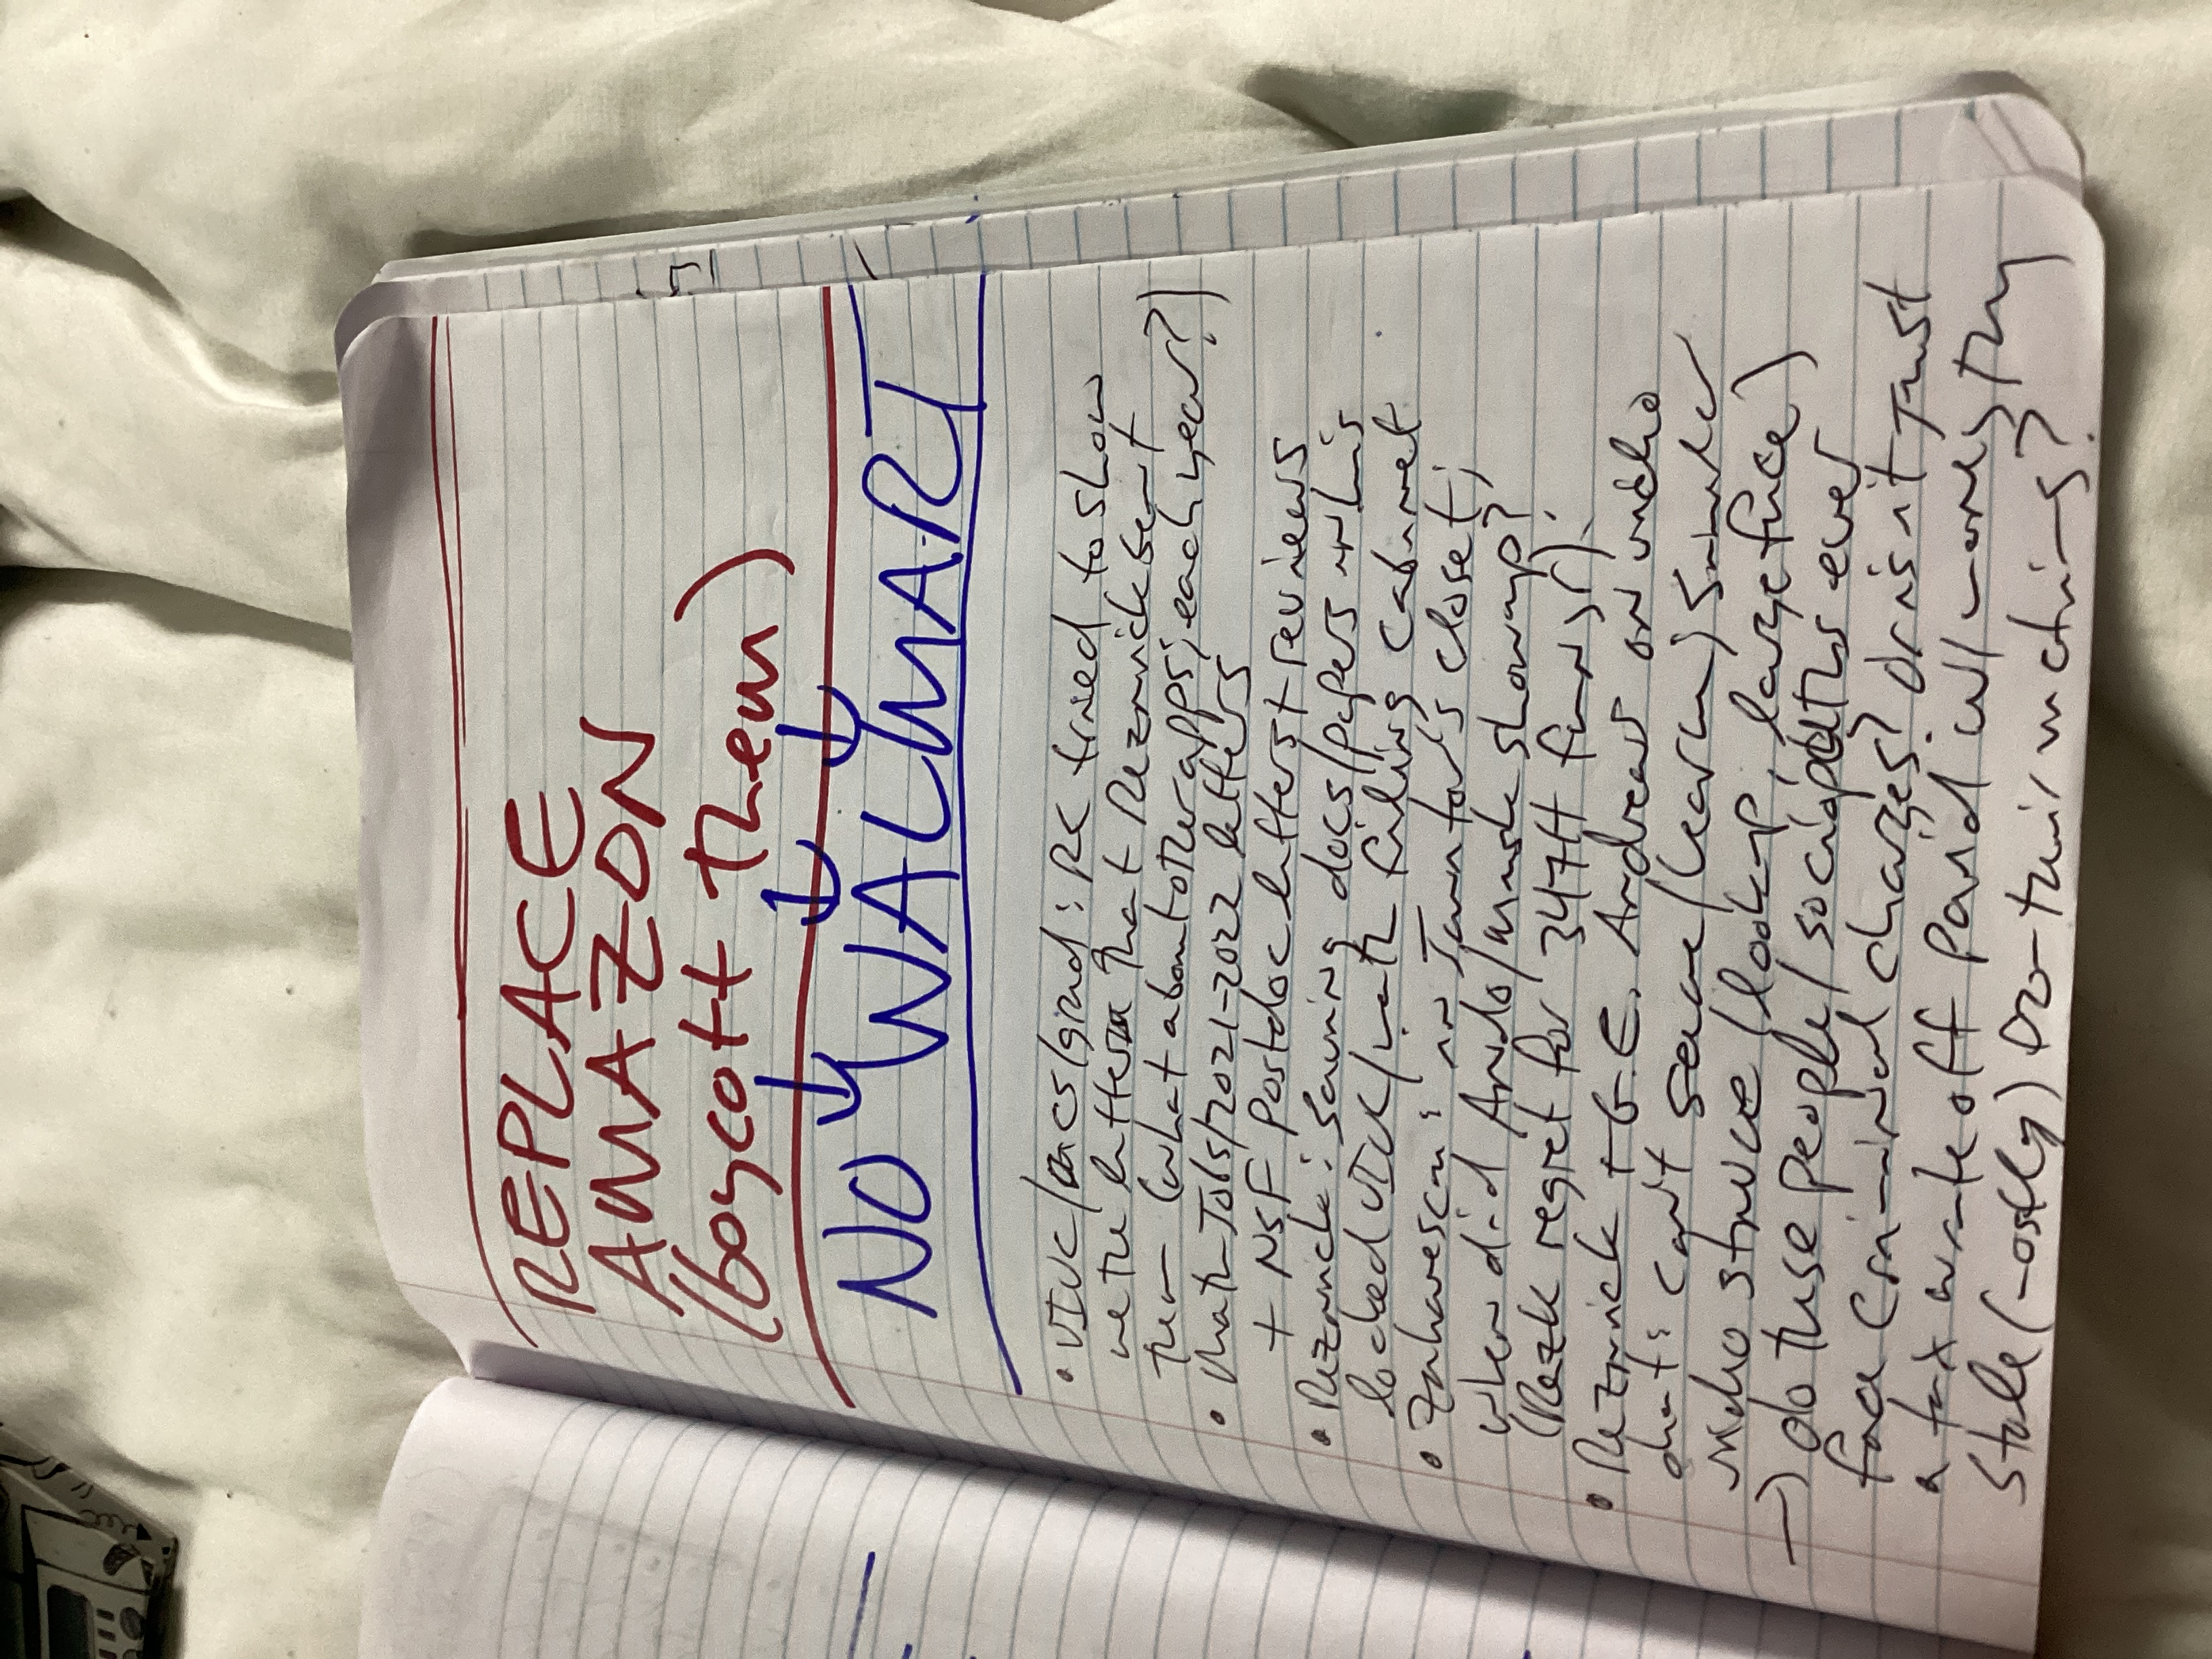 REPLACE
AMAZON
(boycott them)
NO WALMART
• UIUC/ACS/grad: RC tried to show
me the letters that Reznick sent
them (what about other apps; each year?)
• Math Jobs/2021-2022 letters
+ NSF Postdoc letters + reviews
• Reznick: saving docs/papers in his
locked UIUC/math filing cabinet
• Zaharescu: in closet;
when did Ando/ show up?
(Rezk regret for 347H
• Reznick + G.E. Andrews on video
chat: can't / learn; similar
video struce (lookup, large face)
→ do these people/sociopaths ever
face criminal charges? Or is it just
a tax write off paid w/ money they
stole (mostly) from their victims?